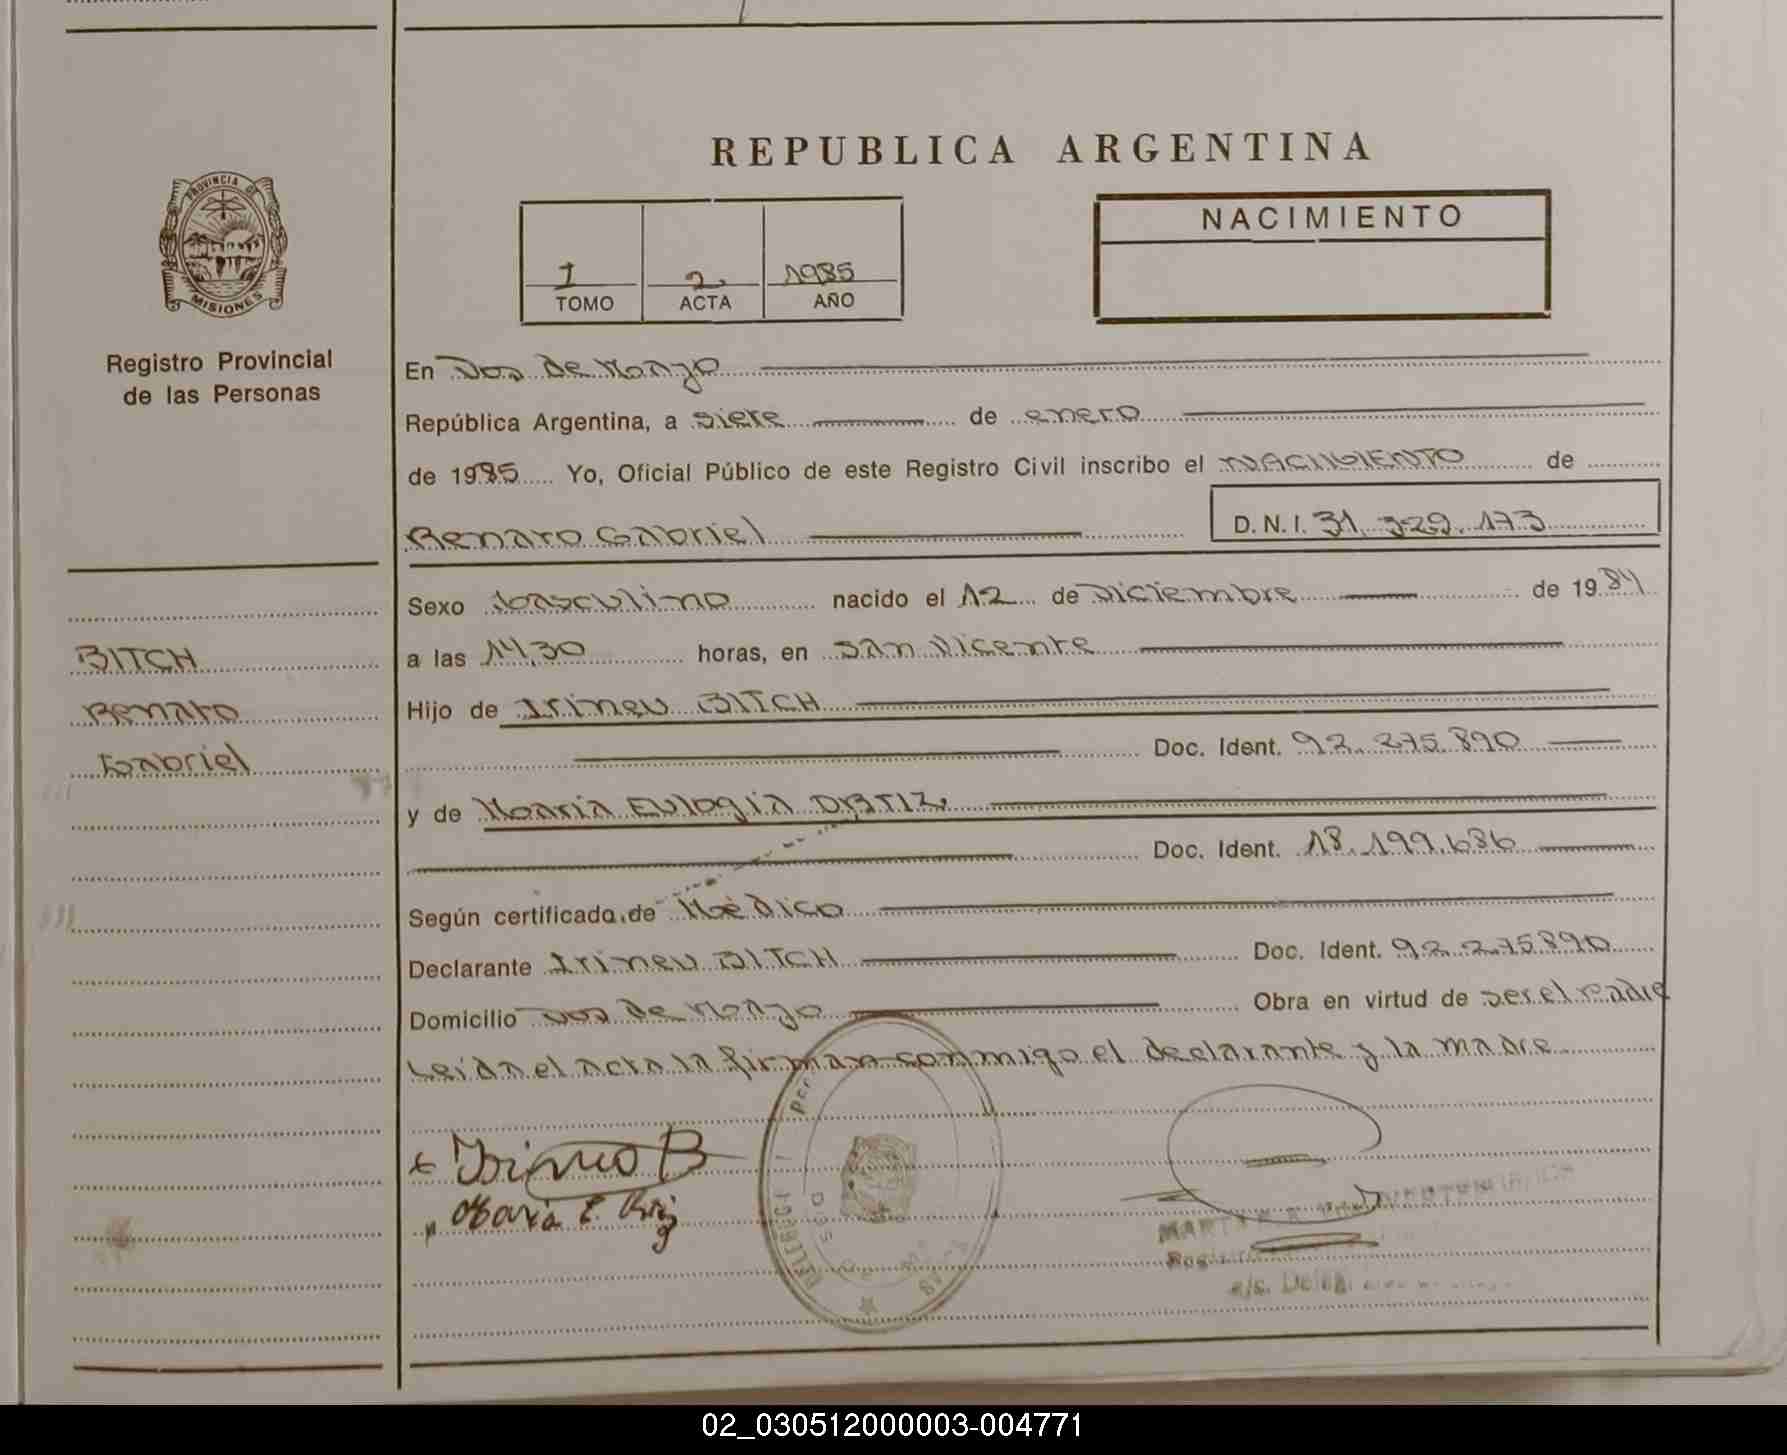 REPUBLICA ARGENTINA
PROVINCIA DE
MISIONES
Registro Provincial
de las Personas
1 2 1985
TOMO ACTA AÑO
NACIMIENTO
En Dos de Mayo
República Argentina, a siete de enero
de 1985 Yo, Oficial Público de este Registro Civil inscribo el NACIMIENTO de
Renato Gabriel D.N.I. 31.329.173
BITCH
Renato
Gabriel
Sexo Masculino nacido el 12 de Diciembre de 1984
a las 14,30 horas, en San Vicente
Hijo de Irineu BITCH
Doc. Ident. 92.275.890
y de Maria Eulogia ORTIZ
Doc. Ident. 18.199.686
Según certificado de Médico
Declarante Irineu BITCH Doc. Ident. 92.275.890
Domicilio Dos de Mayo Obra en virtud de ser el Padre
Leida el acta la firman conmigo el declarante y la madre
x Irineo B
Maria E. Ortiz
02_030512000003-004771